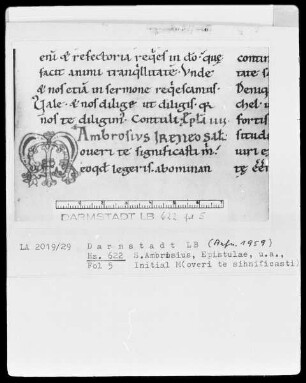 eni. & refectoria reqes in do. que
facit animi tranqllitate. Unde
& nos etiā in sermone reqescamus.
Vale. & nos dilige ut diligis. qa
nos te diligim. Contuli. epla iiii.
Ambrosius Ireneo sal.
Moueri te significasti m
eo qd legeris. abominan
contin
tate s
Deniq
chel. u
fortis
stitudo
uiri e
te
DARMSTADT LB 622 fol 5
LA 2019/29 Darmstadt LB (Aufn. 1959)
Hs. 622 S.Ambrosius, Epistulae, u.a.,
Fol 5 Initial M(overi te sihnificasti)